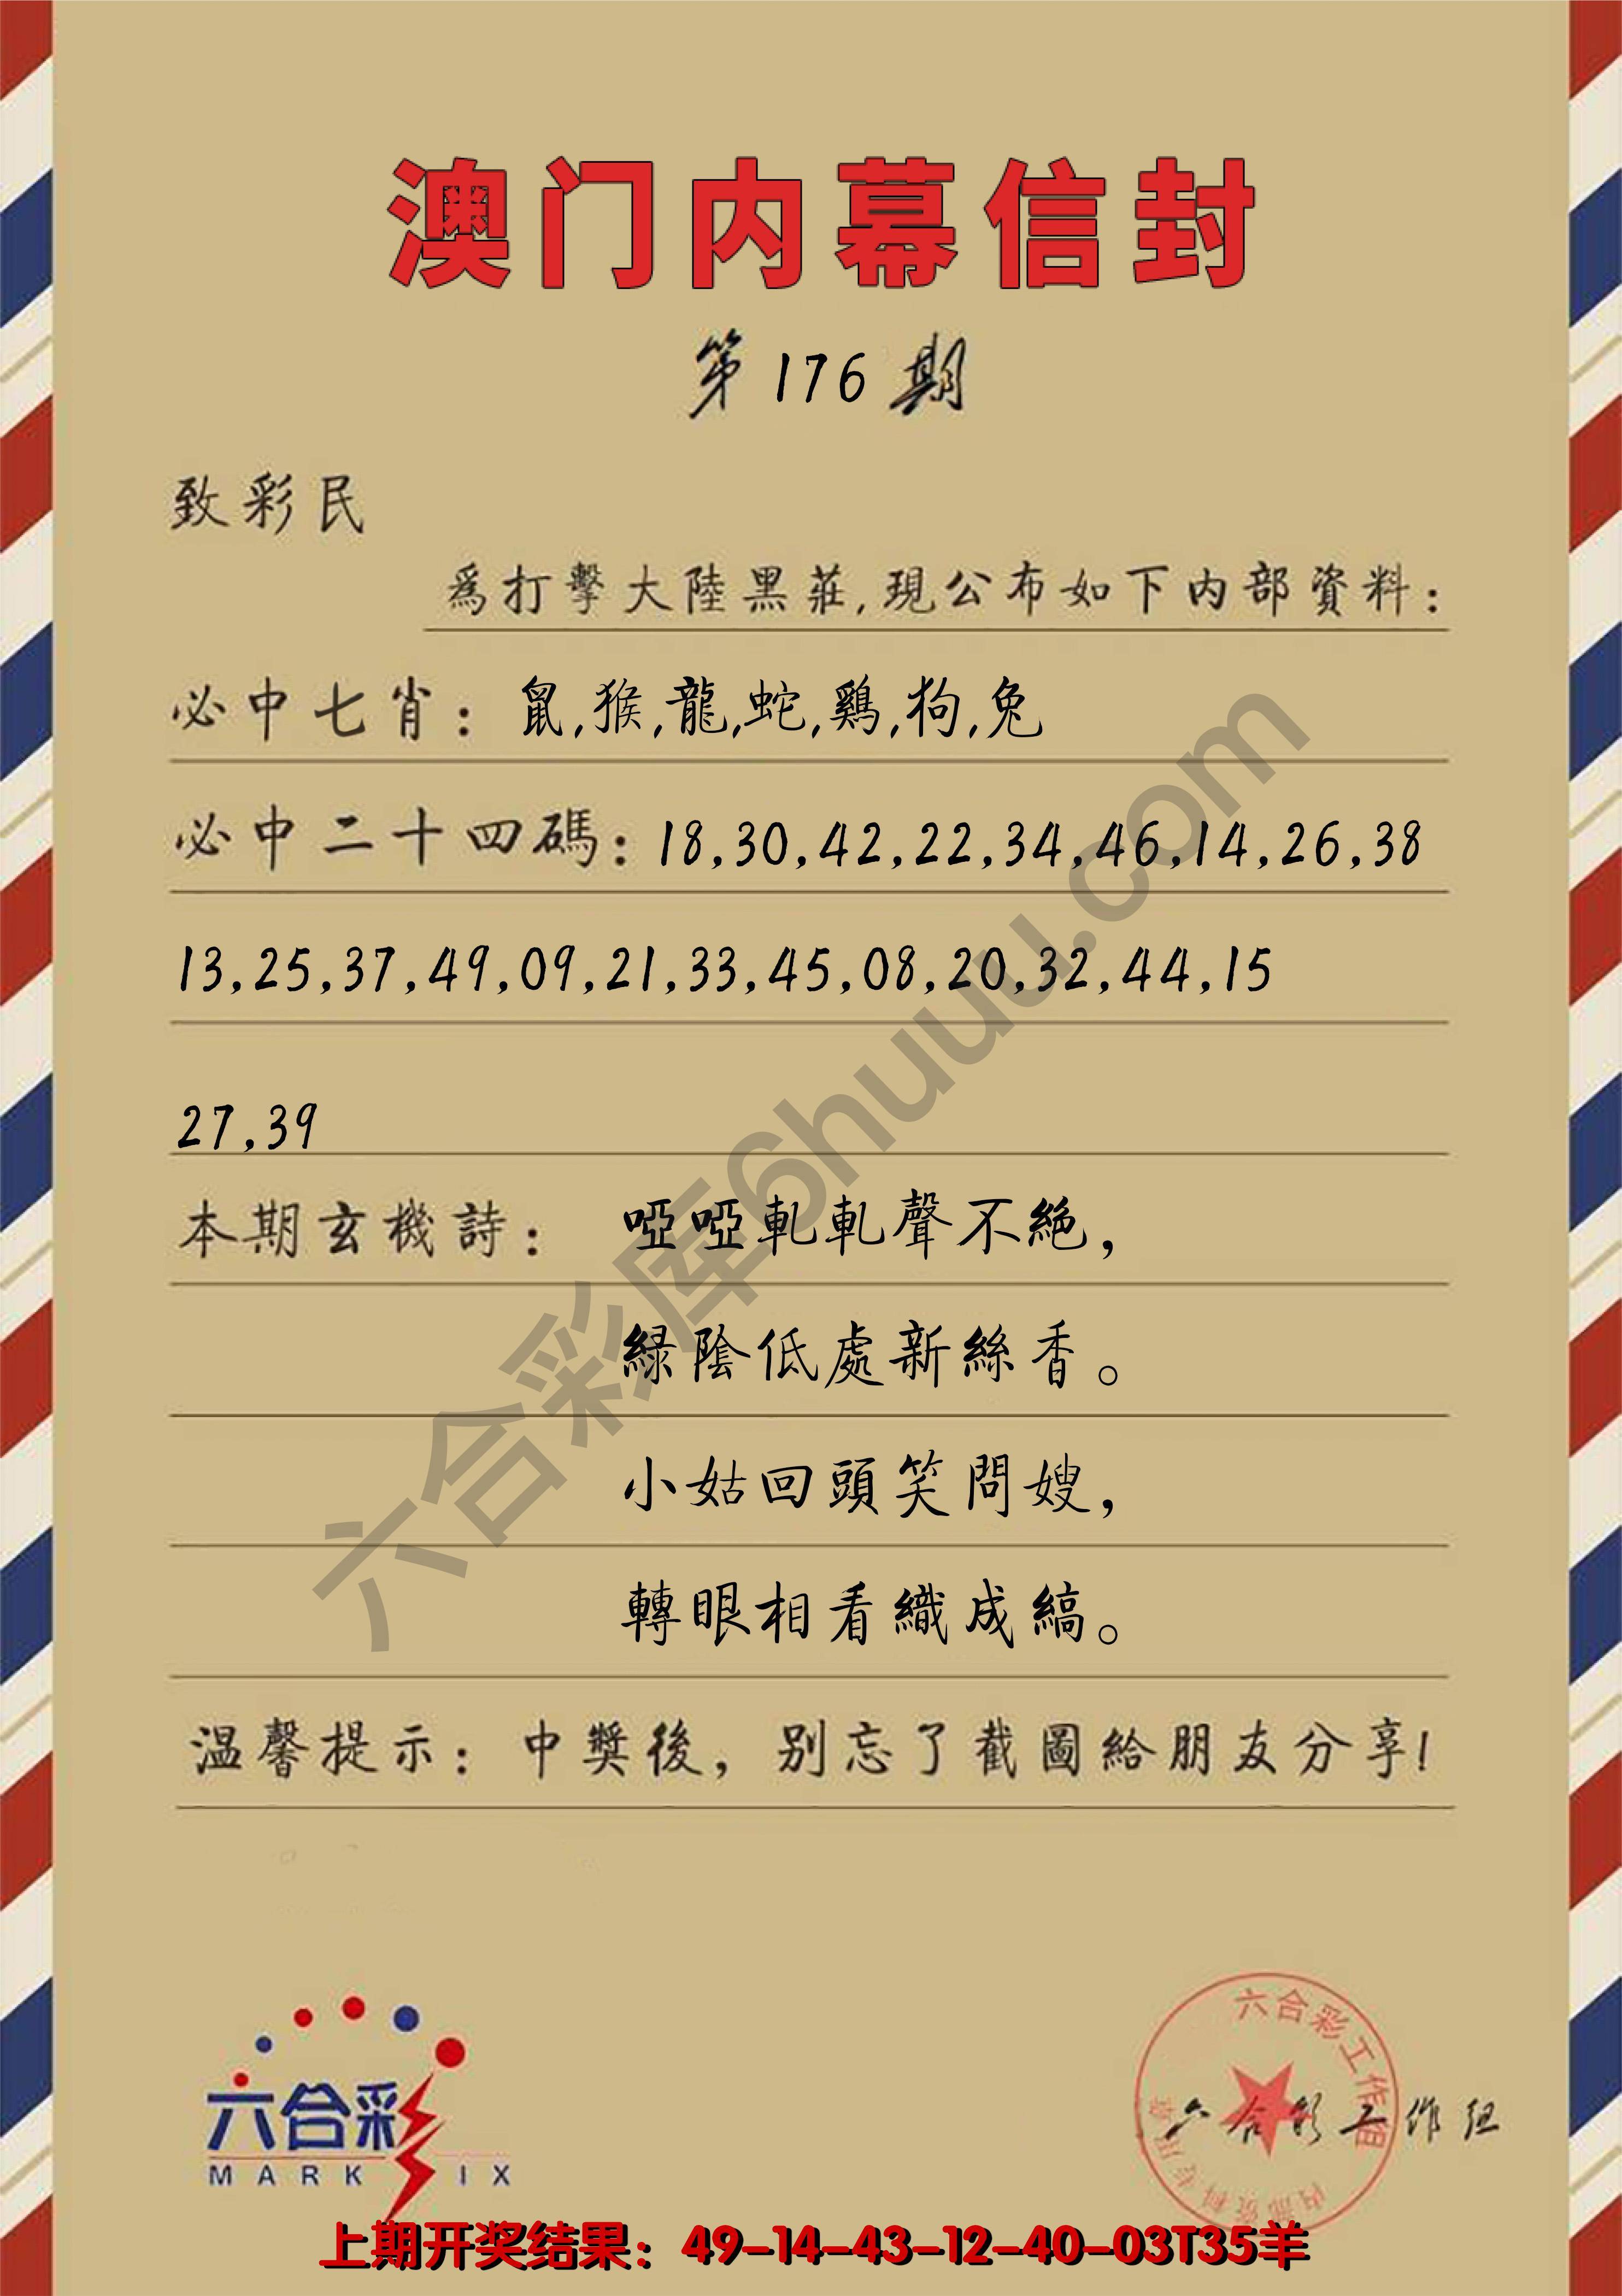 澳门内幕信封
第176期
致彩民
為打擊大陸黑莊,現公布如下内部資料:
必中七肖: 鼠,猴,龍,蛇,鷄,狗,兔
必中二十四碼: 18,30,42,22,34,46,14,26,38
13,25,37,49,09,21,33,45,08,20,32,44,15
27,39
本期玄機詩: 啞啞軋軋聲不絶,
緑陰低處新絲香。
小姑回頭笑問嫂,
轉眼相看織成縞。
温馨提示: 中獎後, 别忘了截圖給朋友分享!
六合彩库6huuu.com
六合彩
MARK SIX
六合彩工作组
内部资料专用章
六合彩工作组
上期开奖结果: 49-14-43-12-40-03T35羊